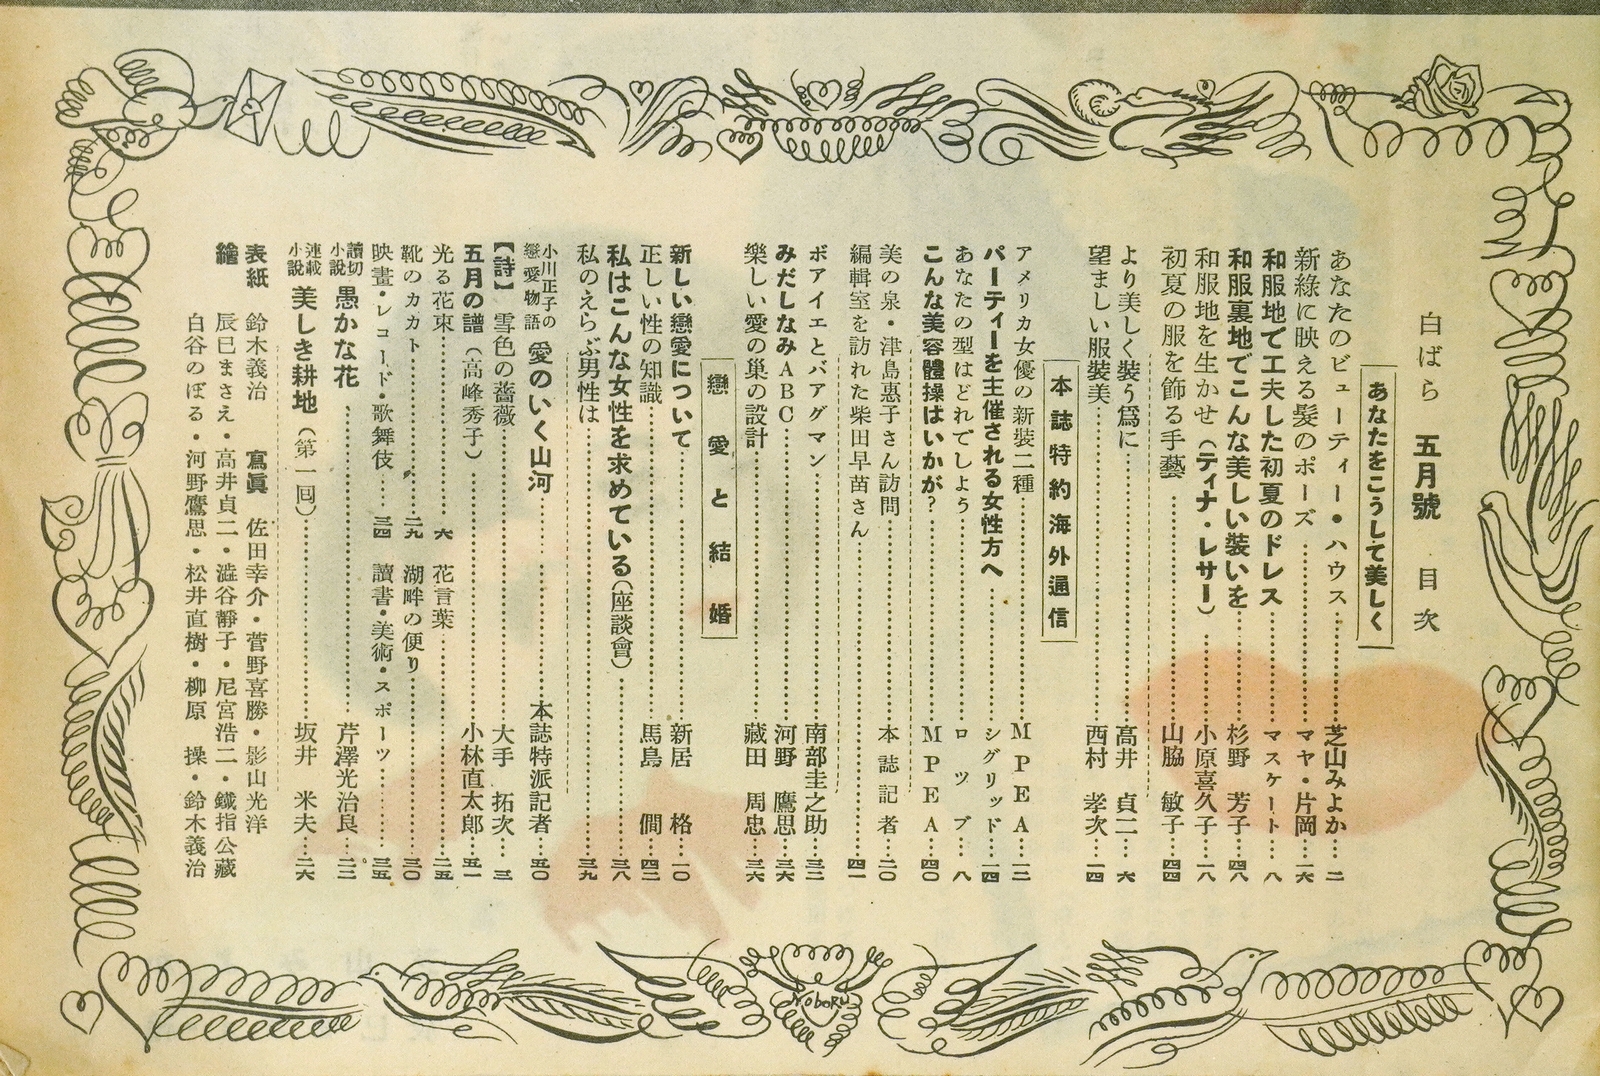 白ばら 五月號 目次
あなたをこうして美しく
あなたのビューティー・ハウス……芝山みよか…二
新綠に映える髮のポーズ……マヤ・片岡…一六
和服地で工夫した初夏のドレス……マスケート…八
和服裏地でこんな美しい裝いを……杉野芳子…四八
和服地を生かせ(ティナ・レサー)……小原喜久子…一八
初夏の服を飾る手藝……山脇敏子…四四
より美しく裝う爲に……高井貞二…六
望ましい服裝美……西村孝次…一四
本誌特約海外通信
アメリカ女優の新裝二種……MPEA…一二
パーティーを主催される女性方へ……シグリッド…一四
あなたの型はどれでしよう……ロツプ…八
こんな美容體操はいかが?……MPEA…四〇
美の泉・津島惠子さん訪問……本誌記者…二〇
編輯室を訪れた柴田早苗さん……四一
ボアイエとバアグマン……南部圭之助…三二
みだしなみABC……河野鷹思…三六
樂しい愛の巢の設計……藏田周忠…三六
戀愛と結婚
新しい戀愛について……新居格…一〇
正しい性の知識……馬島僩…四二
私はこんな女性を求めている(座談會)……三八
私のえらぶ男性は……三九
小川正子の戀愛物語 愛のいく山河……本誌特派記者…五〇
【詩】雪色の薔薇……大手拓次…三
五月の譜(高峰秀子)……小林直太郎…五一
光る花束……六 花言葉……二五
靴のカカト……二九 湖畔の便り……三〇
映畫・レコード・歌舞伎……三四 讀書・美術・スポーツ……三五
讀切小説 愚かな花……芹澤光治良…二二
連載小説 美しき耕地(第一囘)……坂井米夫…二六
表紙 鈴木義治 寫眞 佐田幸介・菅野喜勝・影山光洋
繪 辰巳まさえ・高井貞二・澁谷靜子・尼宮浩二・鐵指公藏
白谷のぼる・河野鷹思・松井直樹・柳原操・鈴木義治
NoboRU